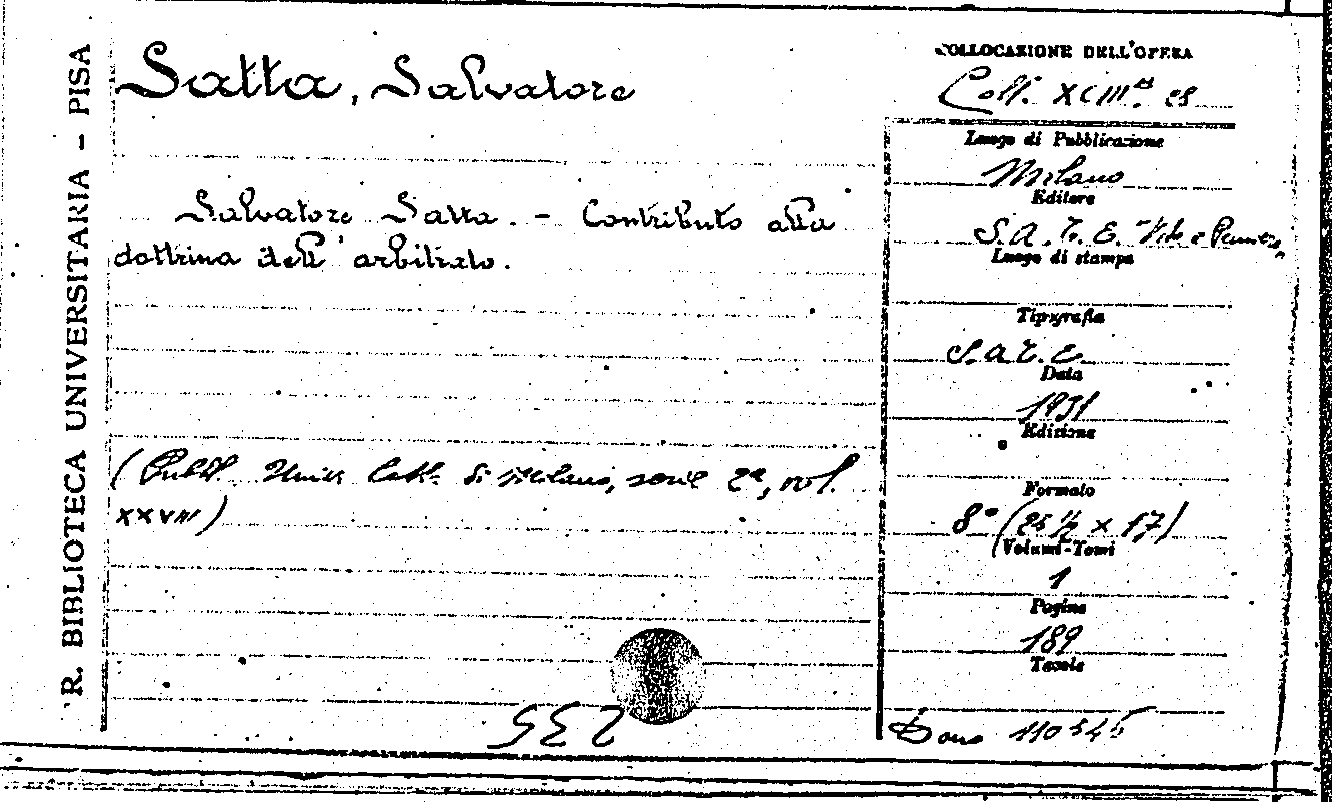 R. BIBLIOTECA UNIVERSITARIA - PISA
Satta, Salvatore
Salvatore Satta. - Contributo alla
dottrina dell' arbitrato.
(Pubbl. Univ. Catt. di Milano, serie 2ª, vol.
XXVIII)
COLLOCAZIONE DELL'OPERA
Coll.
Luogo di Pubblicazione
Milano
Editore
S.A.T.E. "Vita e
Luogo di stampa
Tipografia
S.A.T.E.
Data
1931
Edizione
Formato
8° (25 ½ x 17)
Volumi-Tomi
1
Pagine
189
Tavole
Dono 110345